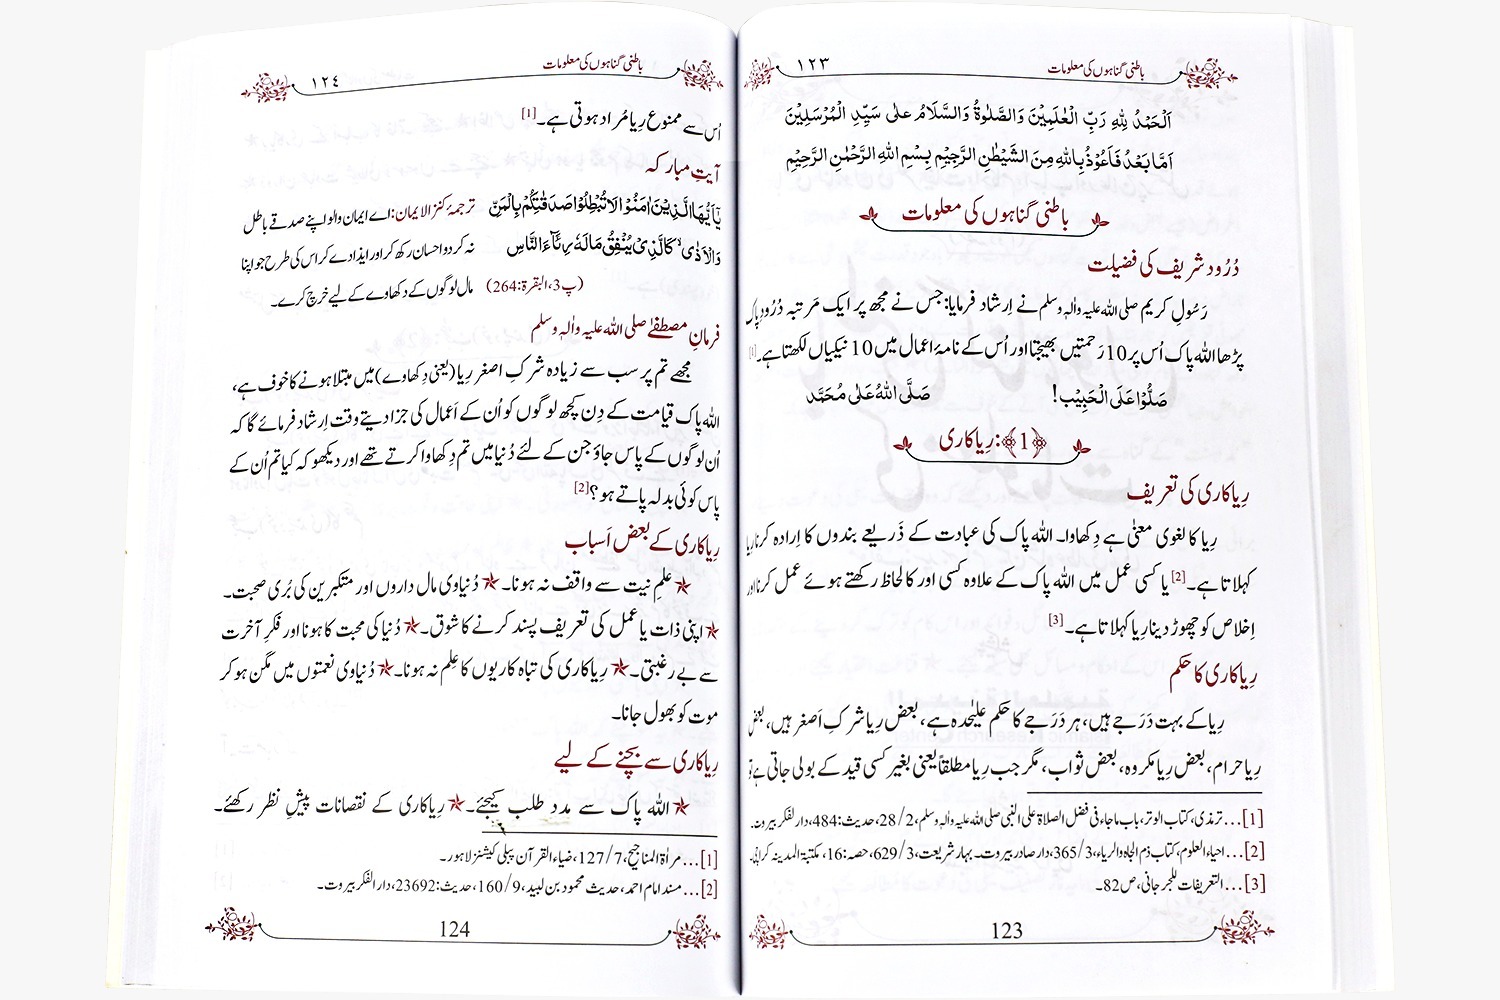 باطنی گناہوں کی معلومات
۱۲۳
اَلْحَمْدُ لِلّٰہِ رَبِّ الْعٰلَمِیْنَ وَالصَّلٰوۃُ وَالسَّلَامُ علٰی سَیِّدِ الْمُرْسَلِیْنَ
اَمَّا بَعْدُ فَاَعُوْذُ بِاللّٰہِ مِنَ الشَّیْطٰنِ الرَّجِیْمِ بِسْمِ اللّٰہِ الرَّحْمٰنِ الرَّحِیْمِ
باطنی گناہوں کی معلومات
دُرُود شریف کی فضیلت
رَسُولِ کریم صلی اللہ علیہ واٰلہٖ وسلم نے اِرشاد فرمایا: جس نے مجھ پر ایک مَرتبہ دُرُودِ پاک
پڑھا اللہ پاک اُس پر 10 رَحمتیں بھیجتا اور اُس کے نامۂ اعمال میں 10 نیکیاں لکھتا ہے۔[1]
صَلُّوْا عَلَی الْحَبِیْب! صَلَّی اللّٰہُ عَلٰی مُحَمَّد
﴿1﴾: رِیاکاری
رِیاکاری کی تعریف
رِیا کا لغوی معنیٰ ہے دِکھاوا۔ اللہ پاک کی عبادت کے ذَریعے بندوں کا اِرادہ کرنا رِیا
کہلاتا ہے۔[2] یا کسی عمل میں اللہ پاک کے علاوہ کسی اور کا لحاظ رکھتے ہوئے عمل کرنا اور
اِخلاص کو چھوڑ دینا رِیا کہلاتا ہے۔[3]
رِیاکاری کا حکم
رِیا کے بہت دَرَجے ہیں، ہر دَرَجے کا حکم علیٰحدہ ہے، بعض رِیا شرکِ اَصغر ہیں، بعض
رِیا حرام، بعض رِیا مکروہ، بعض ثواب، مگر جب رِیا مطلقاً یعنی بغیر کسی قید کے بولی جاتی ہے تو
[1]... ترمذی، کتاب الوتر، باب ماجاء فی فضل الصلاۃ علی النبی صلی اللہ علیہ واٰلہٖ وسلم، 2/28، حدیث: 484، دار الفکر بیروت۔
[2]... احیاء العلوم، کتاب ذم الجاہ والریاء، 3/365، دار صادر بیروت۔ بہار شریعت، 3/629، حصہ: 16، مکتبۃ المدینہ کراچی۔
[3]... التعریفات للجرجانی، ص82۔
123
باطنی گناہوں کی معلومات
۱۲٤
اُس سے ممنوع رِیا مُراد ہوتی ہے۔[1]
آیتِ مبارکہ
یٰۤاَیُّهَا الَّذِیْنَ اٰمَنُوْا لَا تُبْطِلُوْا صَدَقٰتِكُمْ بِالْمَنِّ ترجمۂ کنز الایمان: اے ایمان والو اپنے صدقے باطل
وَ الْاَذٰىۙ كَالَّذِیْ یُنْفِقُ مَالَهٗ رِئَآءَ النَّاسِ نہ کر دو احسان رکھ کر اور ایذا دے کر اس کی طرح جو اپنا
(پ3، البقرۃ: 264) مال لوگوں کے دکھاوے کے لیے خرچ کرے۔
فرمانِ مصطفٰے صلی اللہ علیہ واٰلہٖ وسلم
مجھے تم پر سب سے زیادہ شرکِ اصغر رِیا (یعنی دِکھاوے) میں مبتلا ہونے کا خوف ہے،
اللہ پاک قیامت کے دِن کچھ لوگوں کو اُن کے اَعمال کی جزا دیتے وقت اِرشاد فرمائے گا کہ
اُن لوگوں کے پاس جاؤ جن کے لئے دُنیا میں تم دِکھاوا کرتے تھے اور دیکھو کہ کیا تم اُن کے
پاس کوئی بدلہ پاتے ہو؟[2]
رِیاکاری کے بعض اَسباب
علمِ نیت سے واقف نہ ہونا۔ دُنیاوی مال داروں اور متکبرین کی بُری صحبت۔
اپنی ذات یا عمل کی تعریف پسند کرنے کا شوق۔ دُنیا کی محبت کا ہونا اور فکرِ آخرت
سے بے رغبتی۔ رِیاکاری کی تباہ کاریوں کا عِلم نہ ہونا۔ دُنیاوی نعمتوں میں مگن ہو کر
موت کو بھول جانا۔
رِیاکاری سے بچنے کے لیے
اللہ پاک سے مدد طلب کیجئے۔ رِیاکاری کے نقصانات پیشِ نظر رکھئے۔
[1]... مراٰۃ المناجیح، 7/127، ضیاء القرآن پبلی کیشنز لاہور۔
[2]... مسند امام احمد، حدیث محمود بن لبید، 9/160، حدیث: 23692، دار الفکر بیروت۔
124